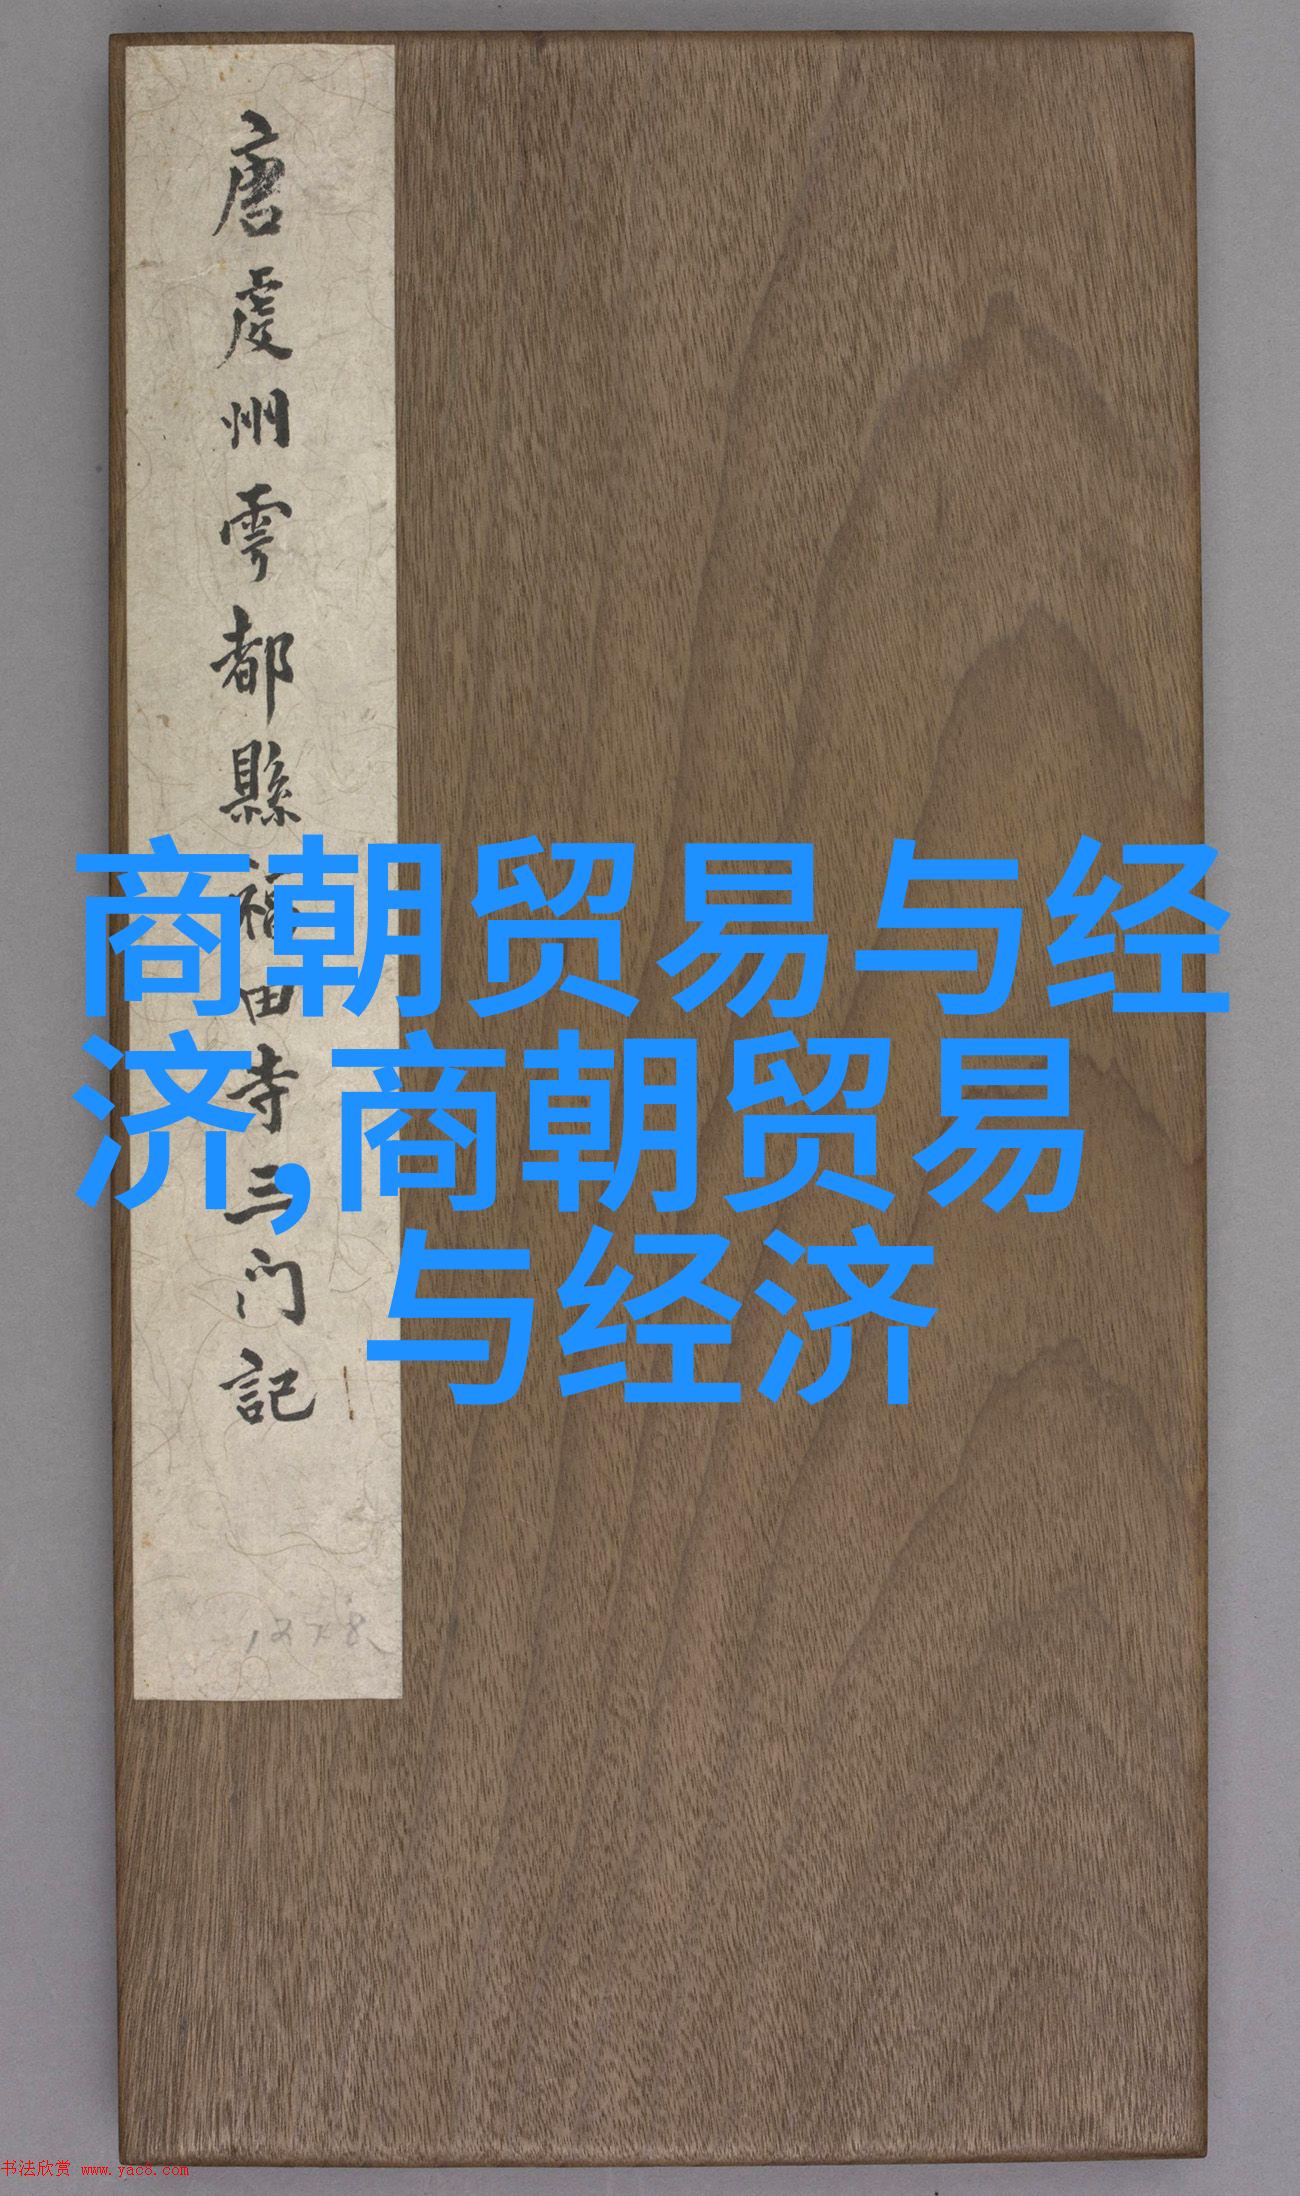 唐虔州雩都縣福田寺三门記
商朝贸易与经
济,商朝贸易
与经济
书法欣赏 www.yac8.com